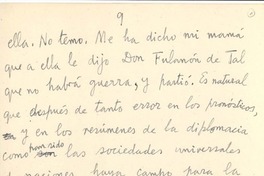 9
ella. No temo. Me ha dicho mi mamá
que a ella le dijo Don Fulanón de Tal
que no habrá guerra, y partió. Es natural
que después de tanto error en los pronósticos,
y en los resúmenes de la diplomacia
han sido
como las sociedades universales
naciones, haya campo para la